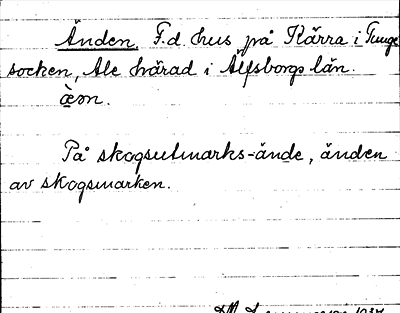 Änden. F.d. hus på Kärra i Tunge
socken, Ale härad i Älfsborgs län.
På skogsutmarks-ände, änden
av skogsmarken.